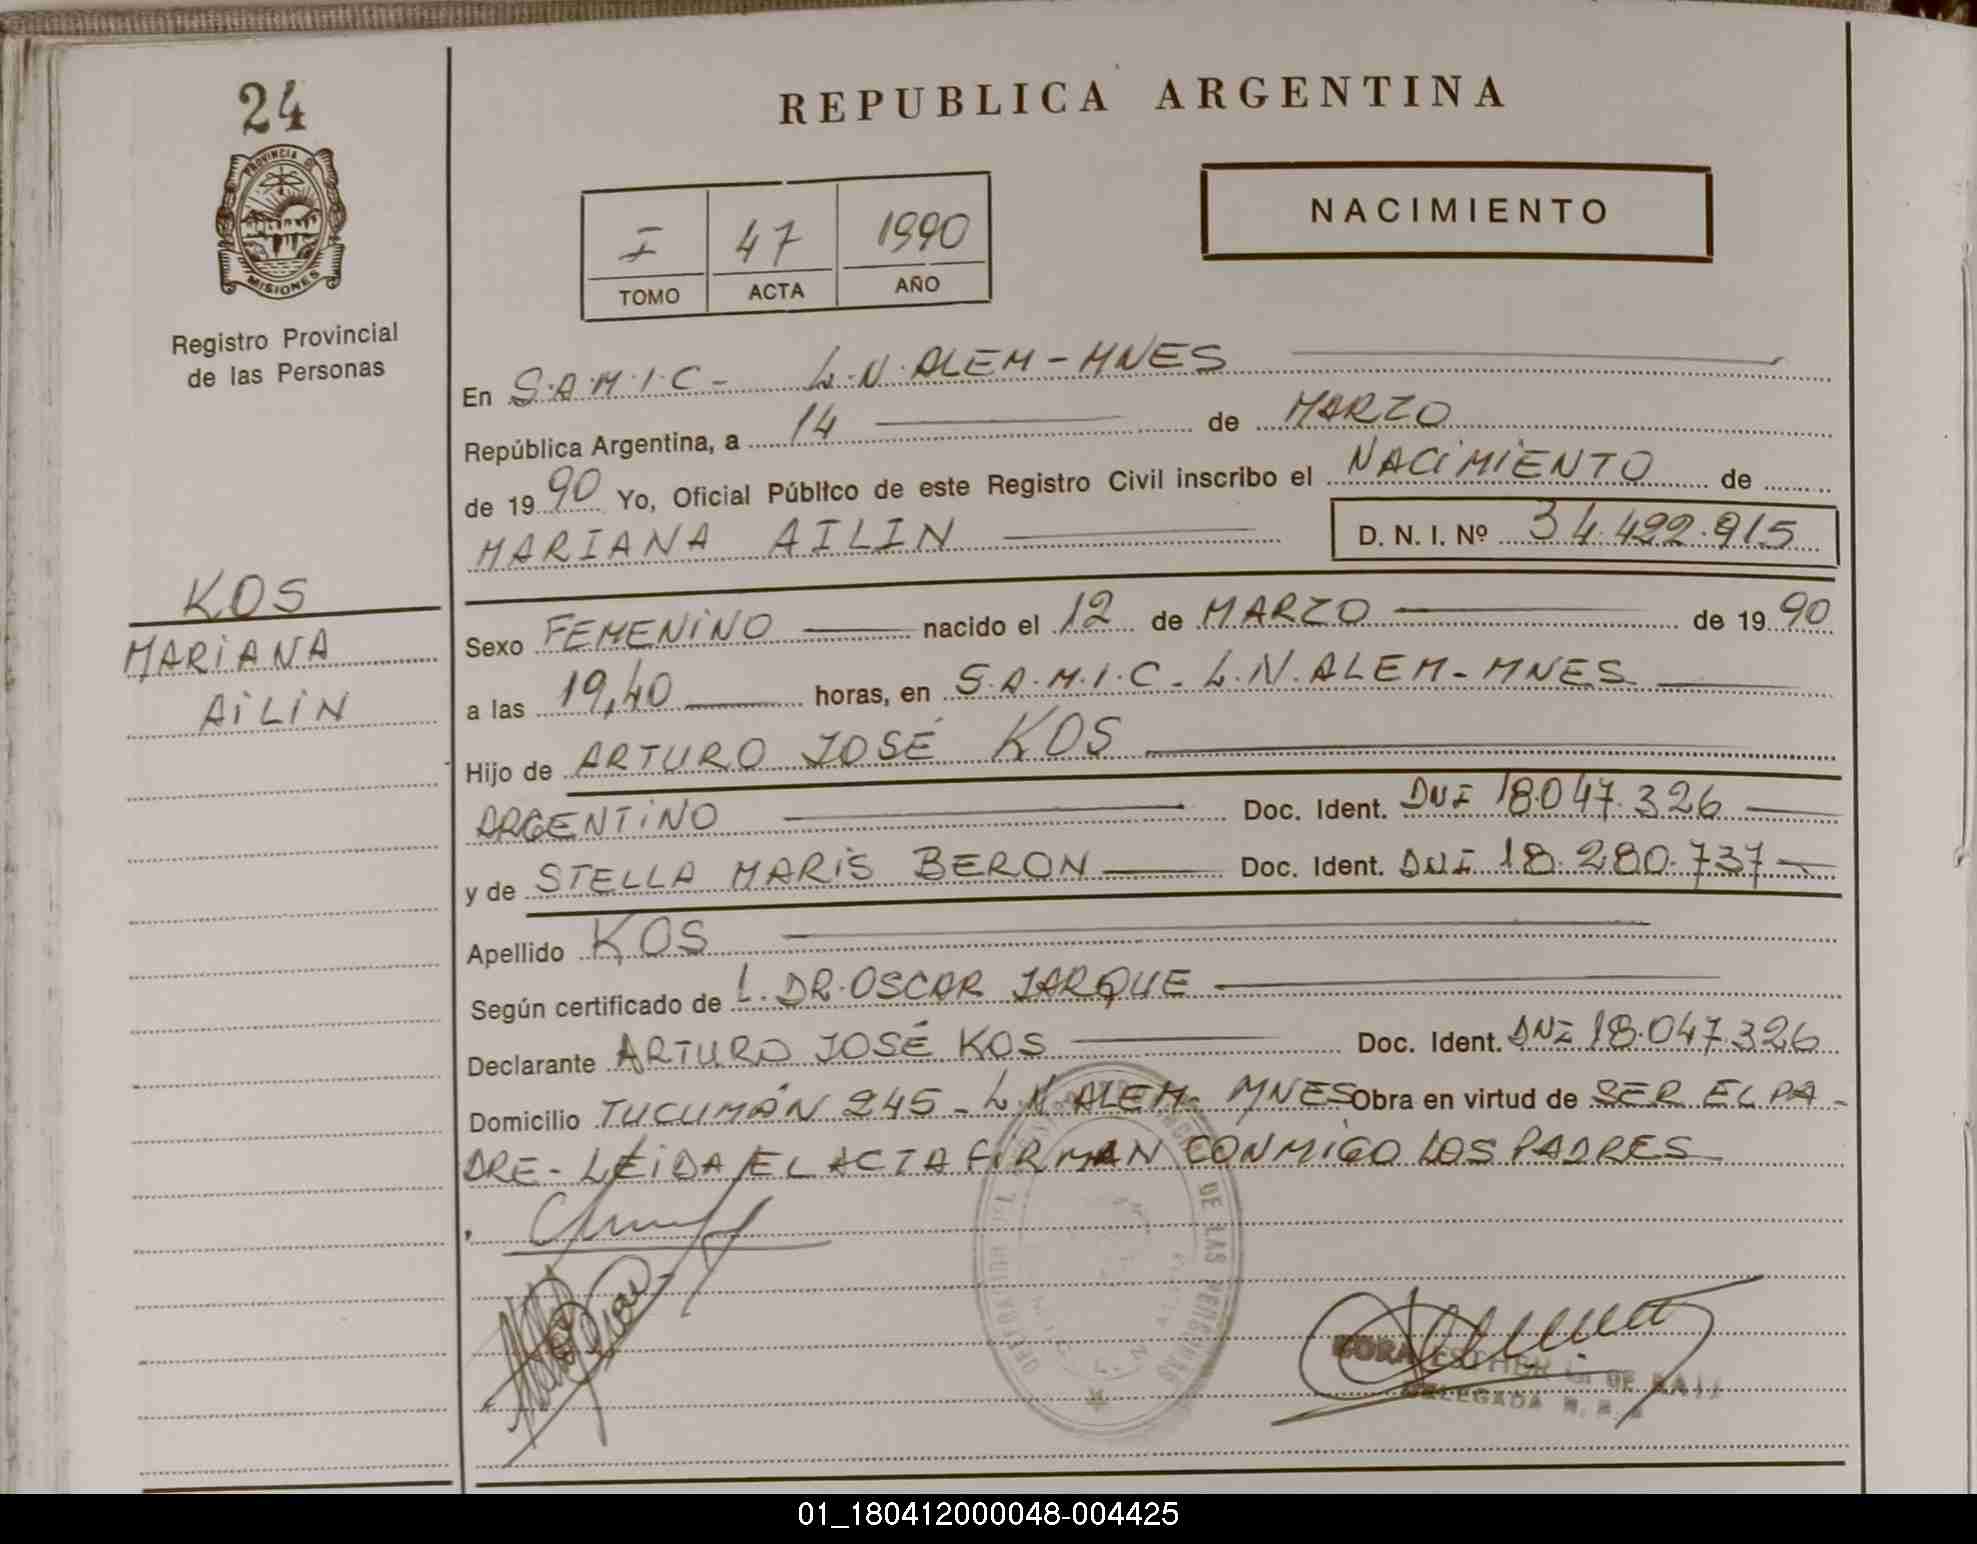 24
PROVINCIA DE
MISIONES
Registro Provincial
de las Personas
KOS
MARIANA
AILIN
REPUBLICA ARGENTINA
I 47 1990
TOMO ACTA AÑO
NACIMIENTO
En S.A.M.I.C - L.N.ALEM - MNES
República Argentina, a 14 de MARZO
de 19 90 Yo, Oficial Público de este Registro Civil inscribo el NACIMIENTO de
MARIANA AILIN D. N. I. Nº 34.422.915
Sexo FEMENINO nacido el 12 de MARZO de 19 90
a las 19,40 horas, en S.A.M.I.C - L.N.ALEM - MNES
Hijo de ARTURO JOSÉ KOS
ARGENTINO Doc. Ident. DNI 18.047.326
y de STELLA MARIS BERON Doc. Ident. DNI 18.280.737
Apellido KOS
Según certificado de L. DR. OSCAR JARQUE
Declarante ARTURO JOSÉ KOS Doc. Ident. DNI 18.047.326
Domicilio TUCUMÁN 245 - L.N.ALEM - MNES Obra en virtud de SER EL PA-
DRE - LEIDA EL ACTA FIRMAN CONMIGO LOS PADRES
DE LAS PERSONAS
ESTHER DE
DELEGADA
01_180412000048-004425